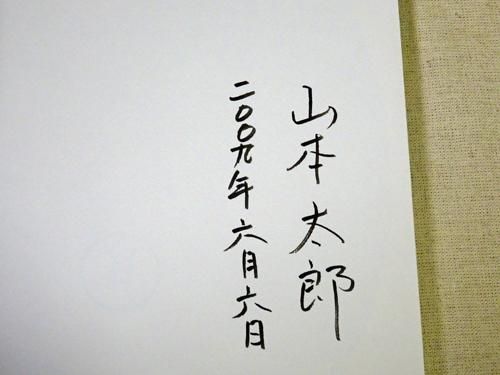 山本太郎
二〇〇九年六月六日